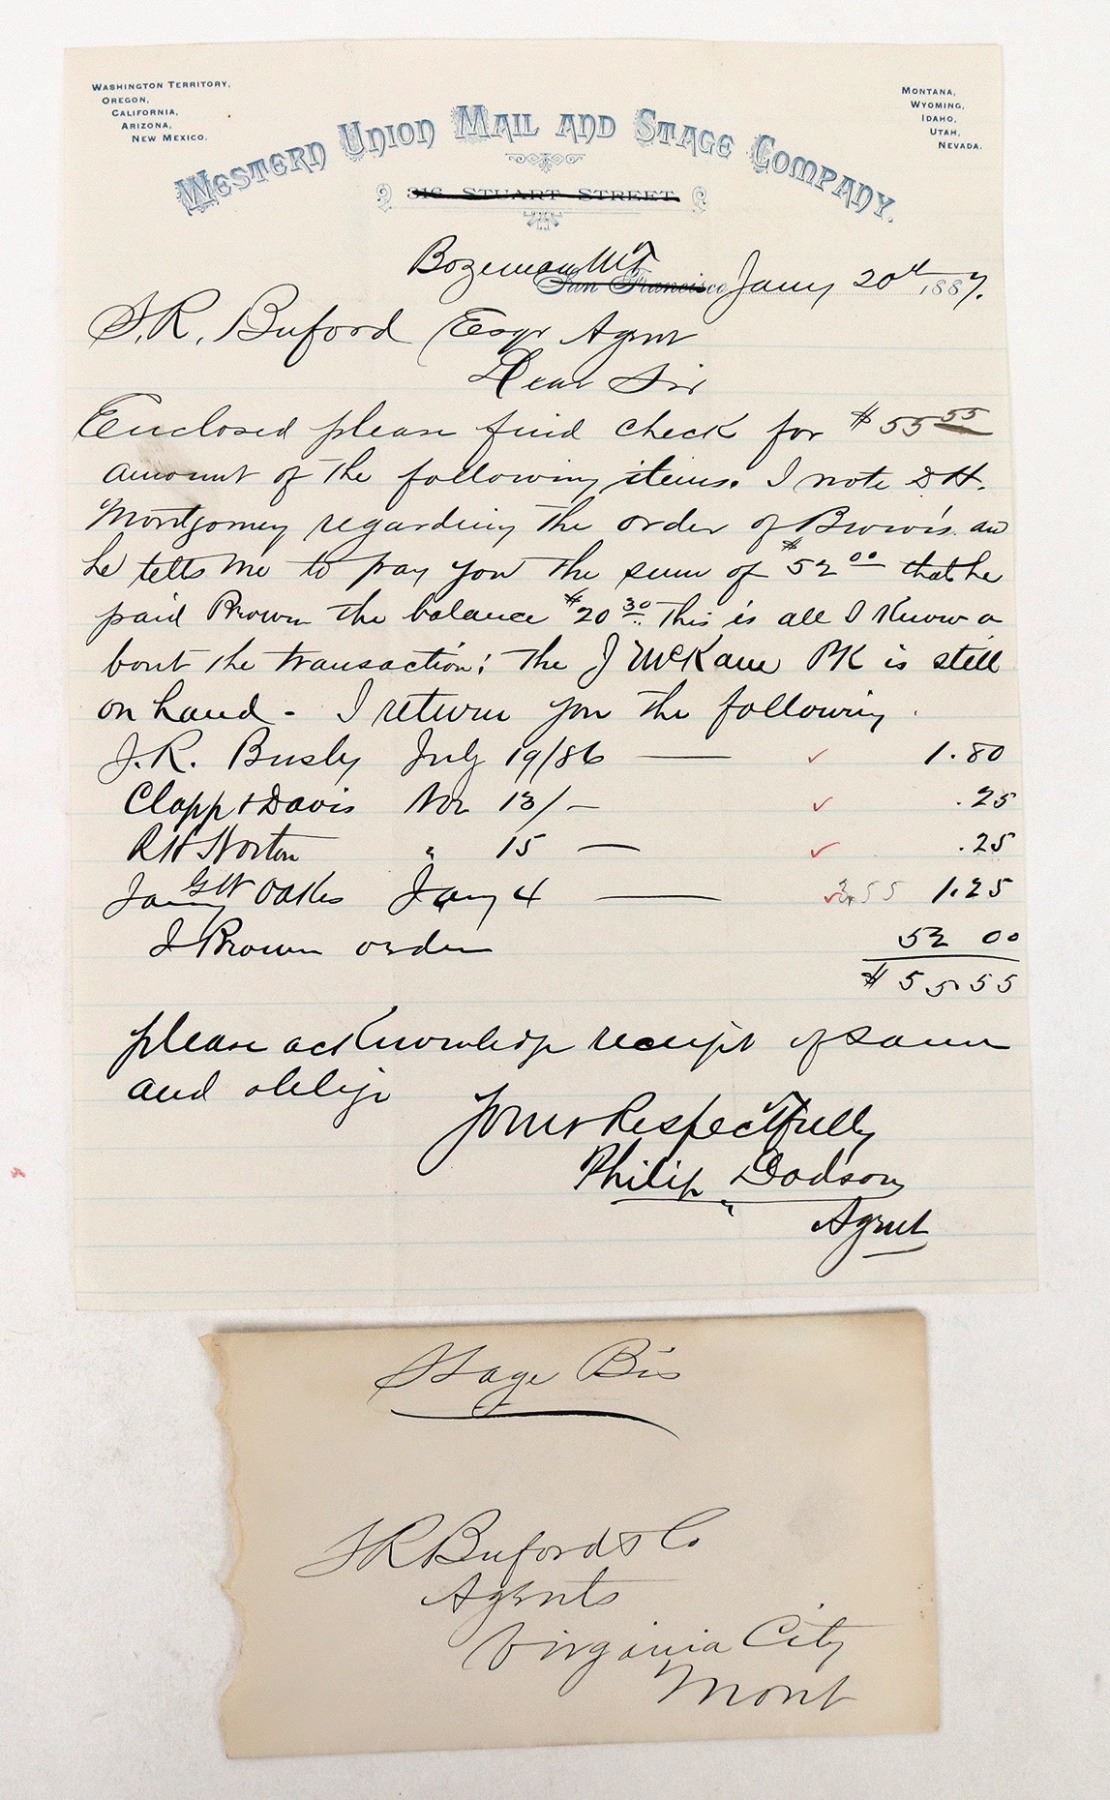 WASHINGTON TERRITORY,
OREGON,
CALIFORNIA,
ARIZONA,
NEW MEXICO.
MONTANA,
WYOMING,
IDAHO,
UTAH,
NEVADA.
WESTERN UNION MAIL AND STAGE COMPANY.
316 STUART STREET.
Bozeman MT
San Francisco Jany 20th 1887.
S. R. Buford Esqr Agent
Dear Sir
Enclosed please find check for $55 55
amount of the following items. I note D H.
Montgomery regarding the order of Brown's. and
he tells me to pay you the sum of $52 00 that he
paid Brown the balance $20 30. This is all I Know a
bout the transaction; The J McKane PK is still
on hand - I return you the following.
J. R. Busby July 19/86 — ✓ 1.80
Clapp & Davis Nov 13/- ✓ .25
R H Norton " 15 — ✓ .25
Jany G W Oakes Jany 4 — ✓ 3.55 1.25
J Brown order 52 00
$ 55.55
please acknowledge receipt of same
and oblige
Yours Respectfully
Philip Dodson
Agent
Stage Bis
S R Buford & Co
Agents
Virginia City
Mont